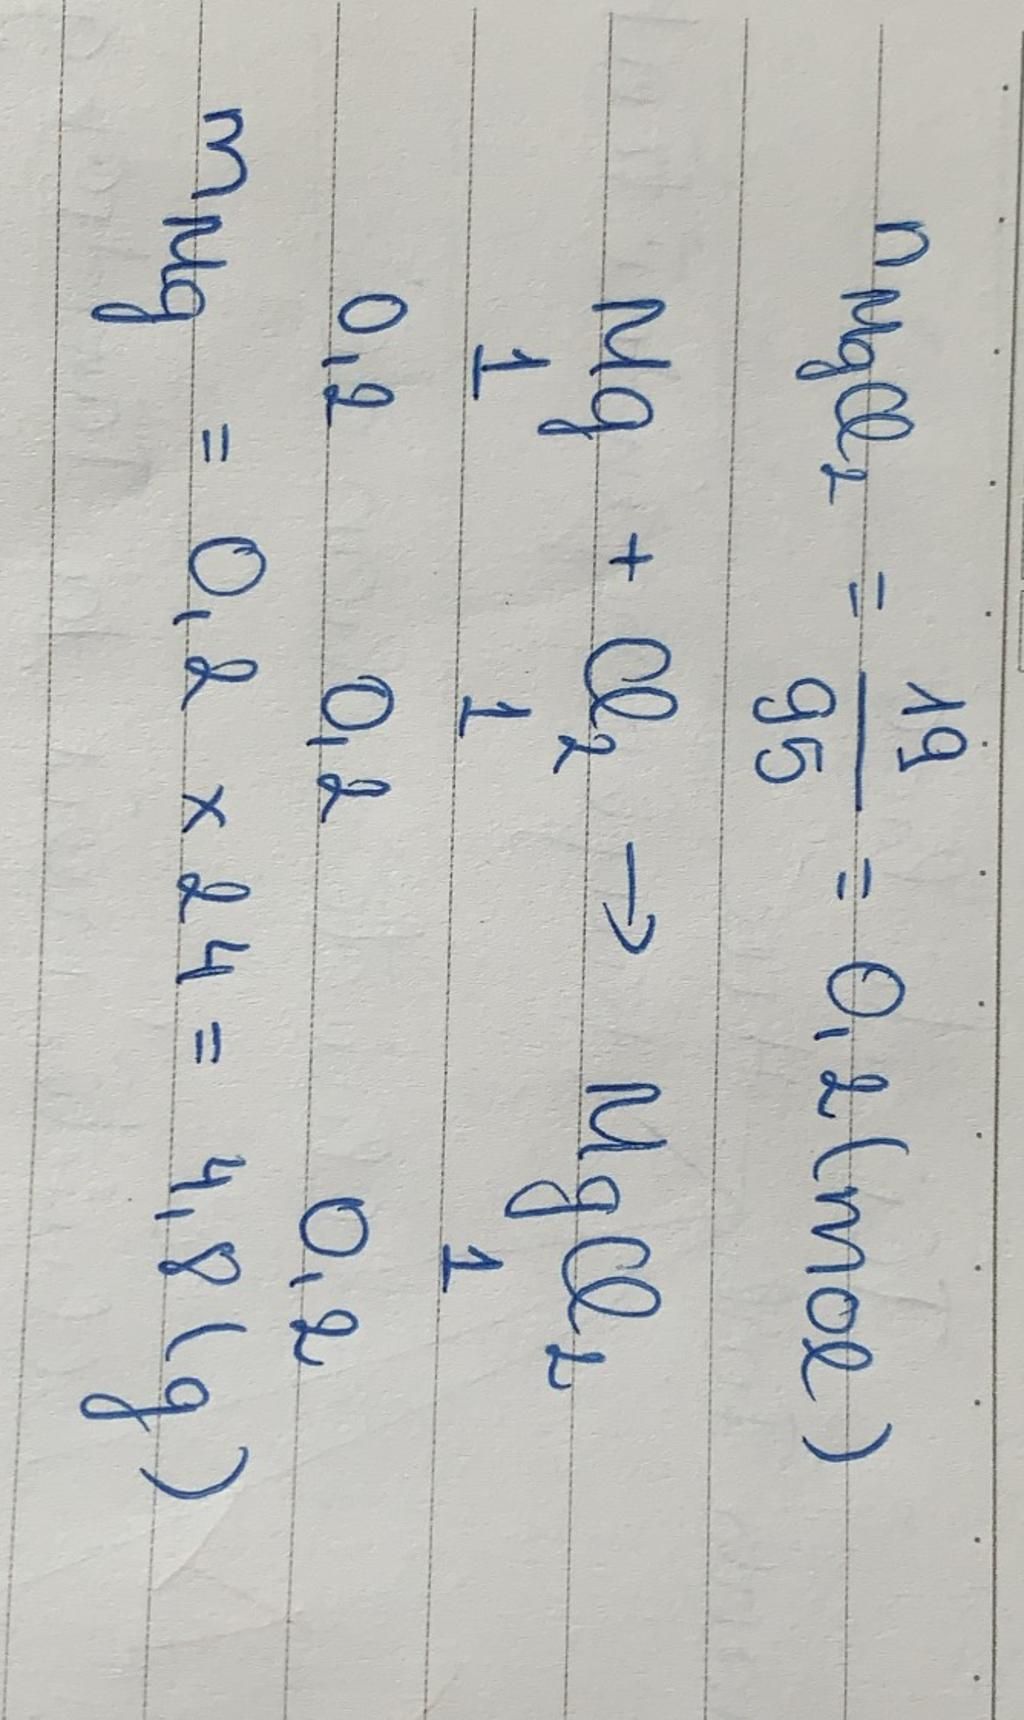 n MgCl2 = 19/95 = 0,2 (mol)
Mg + Cl2 → MgCl2
1 1 1
0,2 0,2 0,2
m Mg = 0,2 x 24 = 4,8 (g)